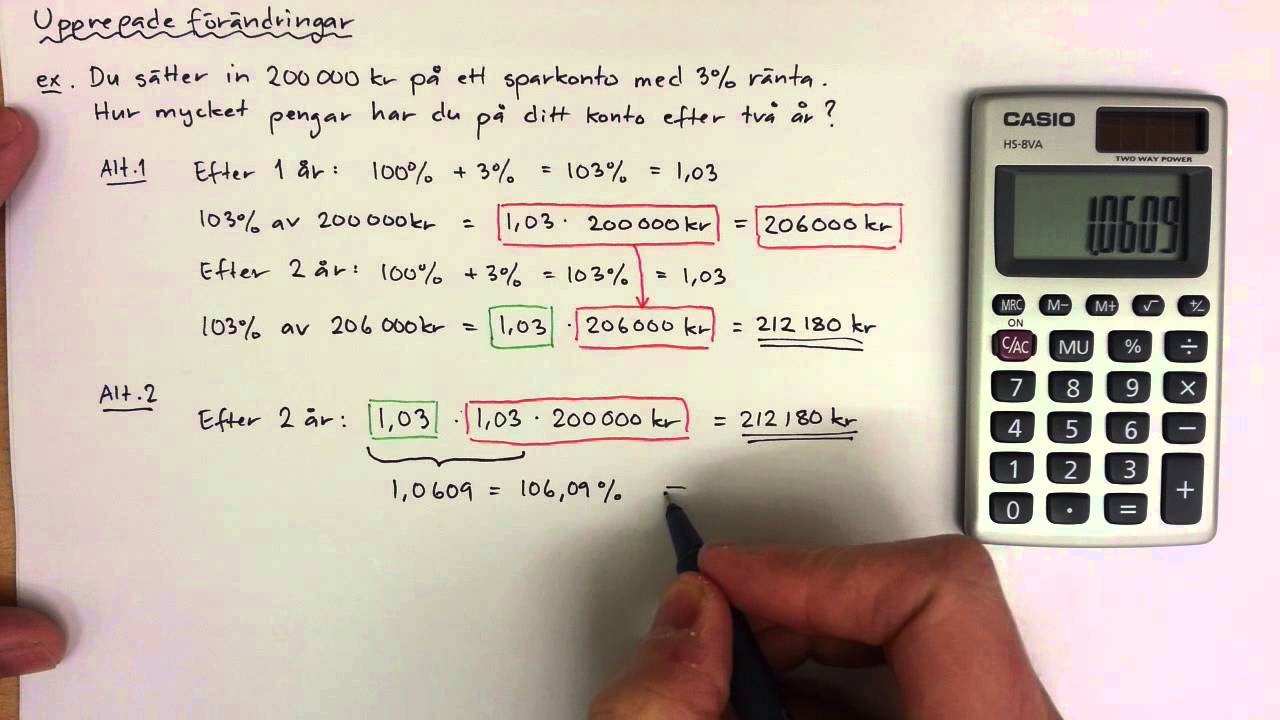 Upprepade förändringar
ex. Du sätter in 200 000 kr på ett sparkonto med 3% ränta.
Hur mycket pengar har du på ditt konto efter två år?
Alt.1 Efter 1 år: 100% + 3% = 103% = 1,03
103% av 200 000 kr = 1,03 · 200 000 kr = 206 000 kr
Efter 2 år: 100% + 3% = 103% = 1,03
103% av 206 000 kr = 1,03 · 206 000 kr = 212 180 kr
Alt.2
Efter 2 år: 1,03 · 1,03 · 200 000 kr = 212 180 kr
1,0609 = 106,09%
CASIO
HS-8VA
TWO WAY POWER
1.0609
MRC M− M+ √ +/−
ON
C/AC MU % ÷
7 8 9 ×
4 5 6 −
1 2 3 +
0 · =